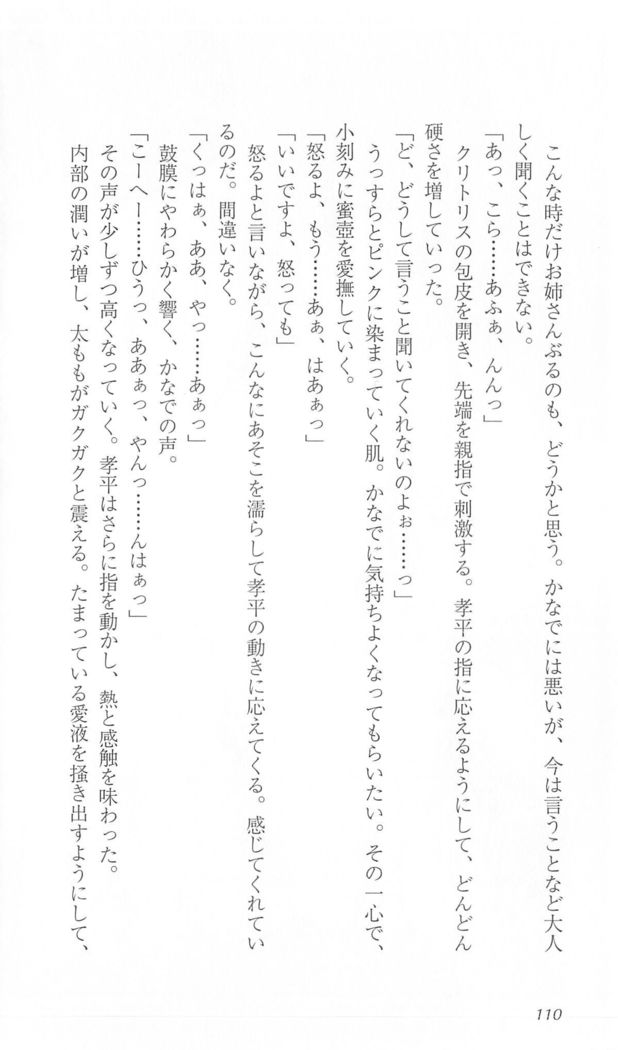 こんな時だけお姉さんぶるのも、どうかと思う。かなでには悪いが、今は言うことなど大人
しく聞くことはできない。
「あっ、こら……あふぁ、んんっ」
クリトリスの包皮を開き、先端を親指で刺激する。孝平の指に応えるようにして、どんどん
硬さを増していった。
「ど、どうして言うこと聞いてくれないのよぉ……っ」
うっすらとピンクに染まっていく肌。かなでに気持ちよくなってもらいたい。その一心で、
小刻みに蜜壺を愛撫していく。
「怒るよ、もう……あぁ、はあぁっ」
「いいですよ、怒っても」
怒るよと言いながら、こんなにあそこを濡らして孝平の動きに応えてくる。感じてくれてい
るのだ。間違いなく。
「くっはぁ、ああ、やっ……あぁっ」
鼓膜にやわらかく響く、かなでの声。
「こーへー……ひうっ、ああぁっ、やんっ……んはぁっ」
その声が少しずつ高くなっていく。孝平はさらに指を動かし、熱と感触を味わった。
内部の潤いが増し、太ももがガクガクと震える。たまっている愛液を掻き出すようにして、
110